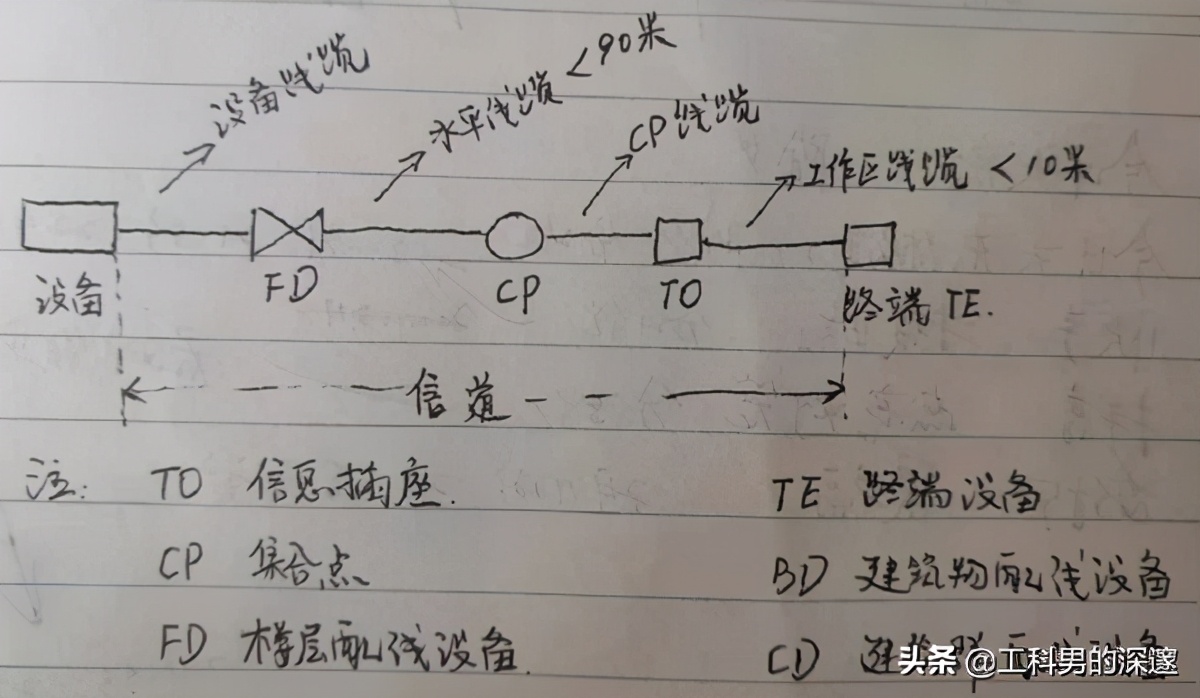 设备线缆
水平线缆 <90米
CP线缆
工作区线缆 <10米
设备
FD
CP
TO
终端 TE.
信道
注: TO 信息插座.
TE 终端设备
CP 集合点
BD 建筑物配线设备
FD 楼层配线设备.
CD 建筑群配线设备
头条 @工科男的深邃